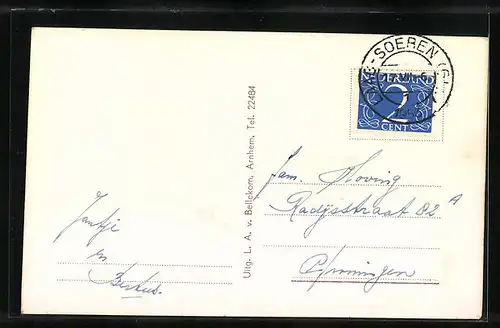 LAAG-SOEREN (GLD)
NEDERLAND
2
CENT
Uitg. L. A. v. Bellekom, Arnhem, Tel. 22484
Fam. Hoving
Radijsstraat 82 A
Groningen
Jantje
en
Bertus.